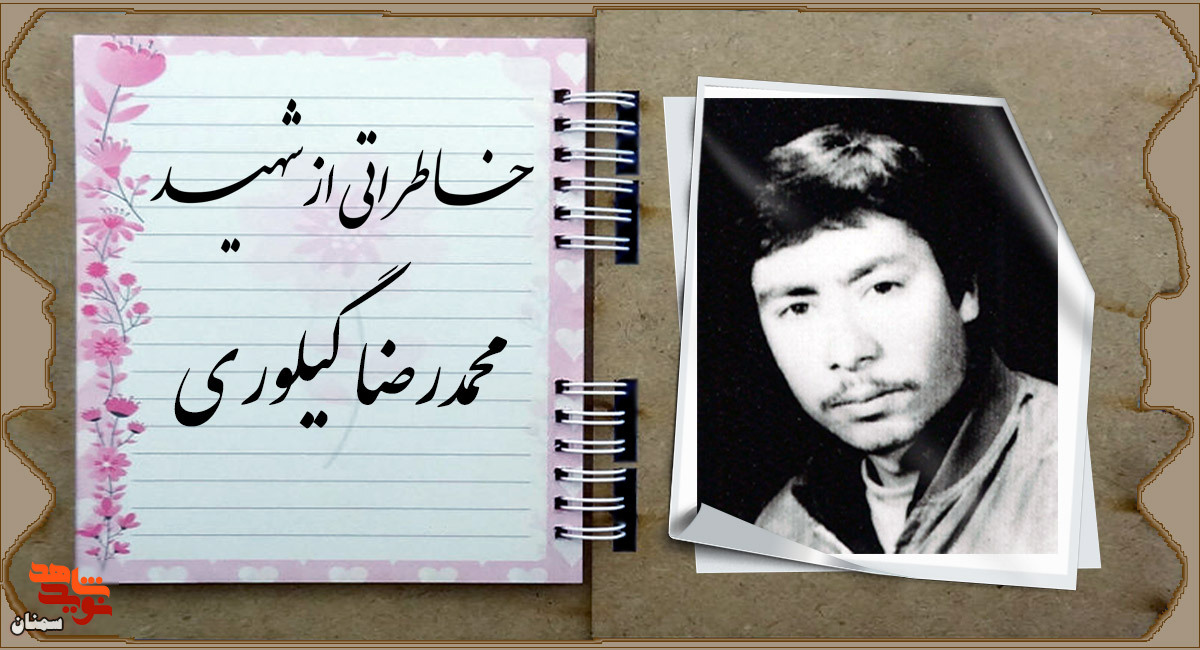 خاطراتی از شهید
محمدرضا گیلوری
نوید شاهد
سمنان